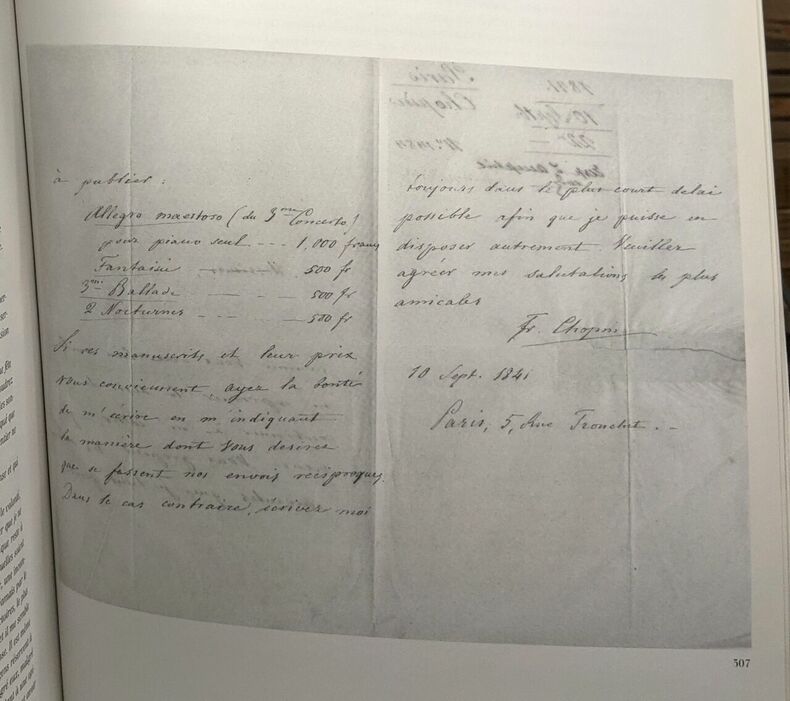 à publier :
Allegro maestoso (du 3me Concerto)
pour piano seul --- 1,000 francs
Fantaisie 500 fr
3me Ballade — — — 500 fr
2 Nocturnes — — — 500 fr
Si ces manuscrits et leur prix
vous conviennent ayez la bonté
de m'écrire en m'indiquant
la manière dont vous desirez
que se fassent nos envois réciproques.
Dans le cas contraire, écrivez moi
toujours dans le plus court delai
possible afin que je puisse en
disposer autrement. Veuillez
agréer mes salutations les plus
amicales
Fr. Chopin
10 Sept. 1841
Paris, 5, Rue Tronchet . –
1841
10 Septb.
Paris
Chopin
307